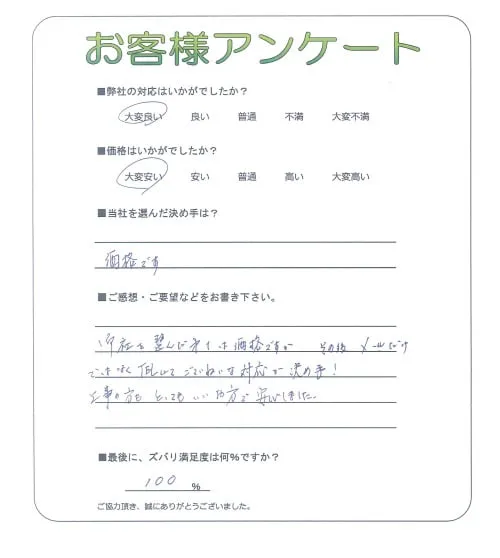 お客様アンケート
■弊社の対応はいかがでしたか？
大変良い 良い 普通 不満 大変不満
■価格はいかがでしたか？
大変安い 安い 普通 高い 大変高い
■当社を選んだ決め手は？
価格です
■ご感想・ご要望などをお書き下さい。
御社を選んだ 価格ですが その後 メールだけ
ではなく TELして ごていねいな対応が決め手！
工事の方も とっても いい方で 安心しました。
■最後に、ズバリ満足度は何%ですか？
100 %
ご協力頂き、誠にありがとうございました。